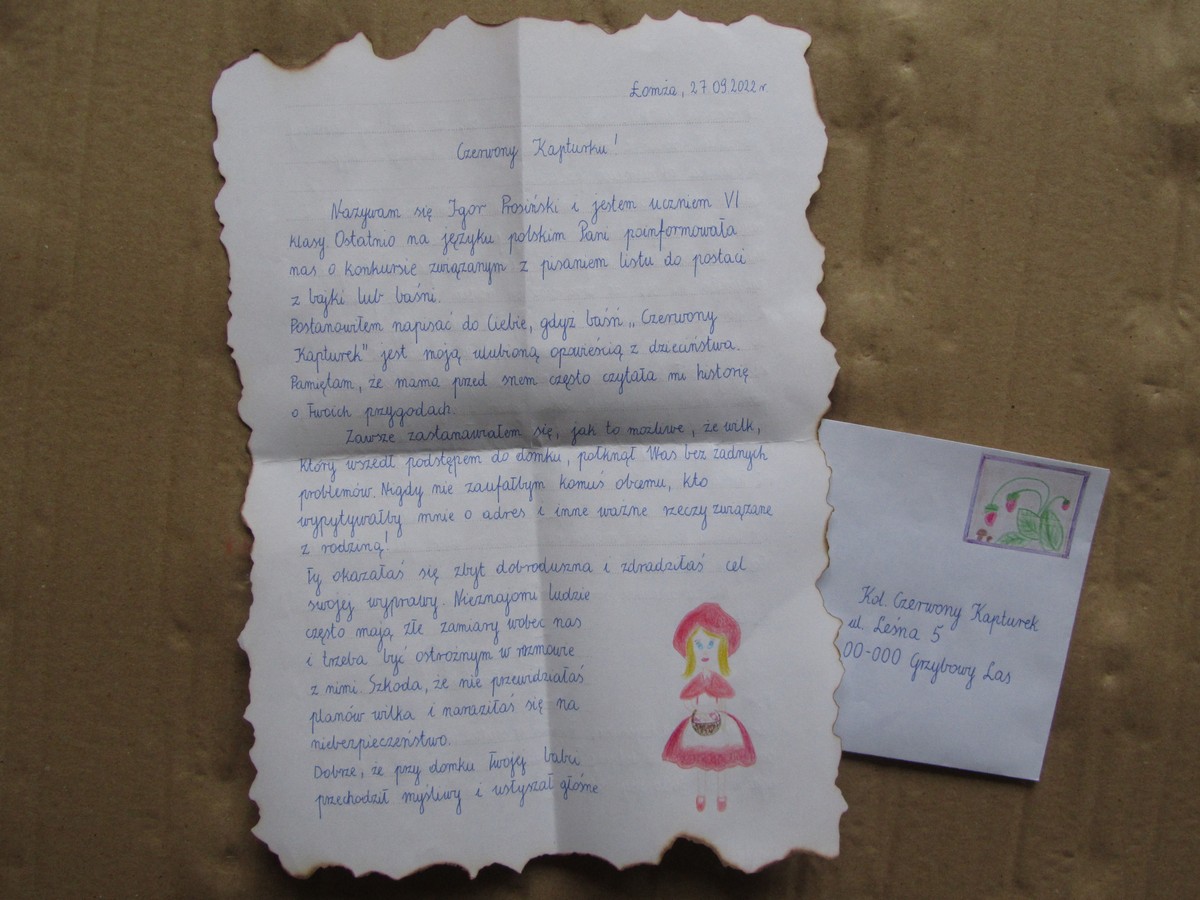 Łomża, 27.09.2022 r.
Czerwony Kapturku!
Nazywam się Igor Prosiński i jestem uczniem VI
klasy. Ostatnio na języku polskim Pani poinformowała
nas o konkursie związanym z pisaniem listu do postaci
z bajki lub baśni.
Postanowiłem napisać do Ciebie, gdyż baśń „Czerwony
Kapturek" jest moją ulubioną opowieścią z dzieciństwa.
Pamiętam, że mama przed snem często czytała mi historię
o Twoich przygodach.
Zawsze zastanawiałem się, jak to możliwe, że wilk,
który wszedł podstępem do domku, połknął Was bez żadnych
problemów. Nigdy nie zaufałbym komuś obcemu, kto
wypytywałby mnie o adres i inne ważne rzeczy związane
z rodziną!
Ty okazałaś się zbyt dobroduszna i zdradziłaś cel
swojej wyprawy. Nieznajomi ludzie
często mają złe zamiary wobec nas
i trzeba być ostrożnym w rozmowie
z nimi. Szkoda, że nie przewidziałaś
planów wilka i naraziłaś się na
niebezpieczeństwo.
Dobrze, że przy domku Twojej babci
przechodził myśliwy i usłyszał głośne
Kol. Czerwony Kapturek
ul. Leśna 5
00-000 Grzybowy Las